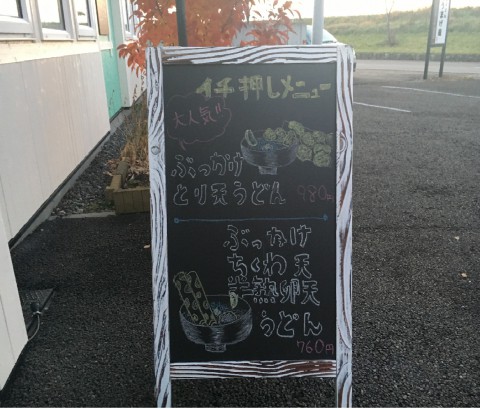 イチ押しメニュー
大人気!!
ぶっかけ
とり天うどん 980円
ぶっかけ
ちくわ天
半熟卵天
うどん
760円